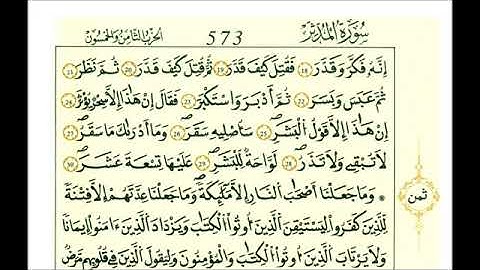 سُورَةُ الْمُدَّثِّرِ 573 الحزب الثامن والخمسون
إِنَّهُ فَكَّرَ وَقَدَّرَ 18 فَقُتِلَ كَيْفَ قَدَّرَ 19 ثُمَّ قُتِلَ كَيْفَ قَدَّرَ 20 ثُمَّ نَظَرَ 21
ثُمَّ عَبَسَ وَبَسَرَ 22 ثُمَّ أَدْبَرَ وَاسْتَكْبَرَ 23 فَقَالَ إِنْ هَٰذَا إِلَّا سِحْرٌ يُؤْثَرُ 24
إِنْ هَٰذَا إِلَّا قَوْلُ الْبَشَرِ 25 سَأُصْلِيهِ سَقَرَ 26 وَمَا أَدْرَىٰكَ مَا سَقَرُ 27
لَا تُبْقِي وَلَا تَذَرُ 28 لَوَّاحَةٌ لِّلْبَشَرِ 29 عَلَيْهَا تِسْعَةَ عَشَرَ 30
وَمَا جَعَلْنَا أَصْحَٰبَ النَّارِ إِلَّا مَلَٰئِكَةً وَمَا جَعَلْنَا عِدَّتَهُمْ إِلَّا فِتْنَةً
ثمن
لِّلَّذِينَ كَفَرُوا لِيَسْتَيْقِنَ الَّذِينَ أُوتُوا الْكِتَٰبَ وَيَزْدَادَ الَّذِينَ ءَامَنُوا إِيمَٰنًا
وَلَا يَرْتَابَ الَّذِينَ أُوتُوا الْكِتَٰبَ وَالْمُؤْمِنُونَ وَلِيَقُولَ الَّذِينَ فِي قُلُوبِهِم مَّرَضٌ